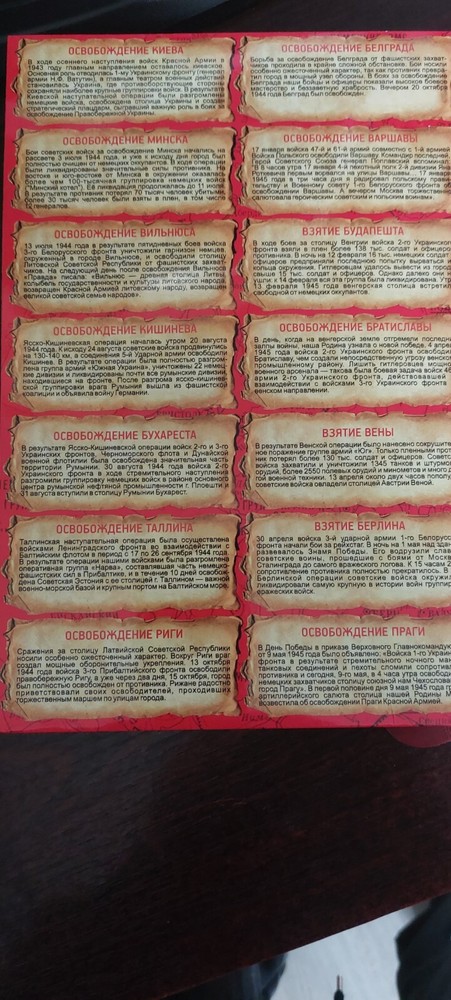 ОСВОБОЖДЕНИЕ КИЕВА
В ходе осеннего наступления войск Красной Армии в
1943 году главным направлением оставалось киевское.
Основная роль отводилась 1-му Украинскому фронту (генерал
армии Н.Ф. Ватутин), а главным театром военных действий
становилась Украина, где противоборствующие стороны
сохраняли наиболее крупные группировки войск. В результате
Киевской наступательной операции были разгромлены
немецкие войска, освобождена столица Украины и создан
стратегический плацдарм, сыгравший важную роль в
освобождении Правобережной Украины.
ОСВОБОЖДЕНИЕ МИНСКА
Бои советских войск за освобождение Минска начались на
рассвете 3 июля 1944 года, и уже к исходу дня город был
полностью очищен от немецких оккупантов. В ходе операции
были ликвидированы значительные силы противника. На
востоке и юго-востоке от Минска в окружении оказалась
более чем 100-тысячная группировка немецких войск
"Минский котел"). Её ликвидация продолжалась до 11 июля.
В результате противник потерял 70 тысяч человек убитыми,
более 30 тысяч человек были взяты в плен, в том числе
12 генералов.
ОСВОБОЖДЕНИЕ ВИЛЬНЮСА
13 июля 1944 года в результате пятидневных боев войска
3-го Белорусского фронта уничтожили гарнизон немцев,
окруженный в городе Вильнюсе, и освободили столицу
Литовской Советской Республики от фашистских захват-
чиков. На следующий день после освобождения Вильнюса
«Правда» писала: «Вильнюс — древняя столица Литвы,
колыбель государственности и культуры литовского народа,
возвращен Красной Армией литовскому народу, возвращен
великой советской семье народов».
ОСВОБОЖДЕНИЕ КИШИНЕВА
Ясско-Кишиневская операция началась утром 20 августа
1944 года. К исходу 24 августа советские войска продвинулись
на 130-140 км, а соединения 5-й Ударной армии освободили
Кишинев. В результате операции была полностью разгром-
лена группа армий «Южная Украина», уничтожены 22 немец-
кие дивизии и ликвидированы почти все румынские дивизии,
находившиеся на фронте. После разгрома ясско-кишинев-
ской группировки врага Румыния вышла из фашистской
коалиции и объявила войну Германии.
ОСВОБОЖДЕНИЕ БУХАРЕСТА
В результате Ясско-Кишиневской операции войск 2-го и 3-го
Украинских фронтов, Черноморского флота и Дунайской
военной флотилии была освобождена значительная часть
территории Румынии. 30 августа 1944 года войска 2-го
Украинского фронта в ходе стремительного наступления
разгромили группировку немецких войск в районе основного
центра румынской нефтяной промышленности г. Плоешти и
31 августа вступили в столицу Румынии Бухарест.
ОСВОБОЖДЕНИЕ ТАЛЛИНА
Таллинская наступательная операция была осуществлена
войсками Ленинградского фронта во взаимодействии с
Балтийским флотом в период с 17 по 26 сентября 1944 года.
В результате операции нашими войсками была разгромлена
оперативная группа «Нарва», составлявшая часть немецко-
фашистских сил в Прибалтике, и в течение 10 дней освобож-
дена Советская Эстония с ее столицей г. Таллином — важной
военно-морской базой и крупным портом на Балтийском море.
ОСВОБОЖДЕНИЕ РИГИ
Сражения за столицу Латвийской Советской Республики
носили особенно ожесточенный характер. Вокруг Риги враг
создал мощные оборонительные укрепления. 13 октября
1944 года войска 3-го Прибалтийского фронта освободили
правобережную Ригу, а уже через два дня, 15 октября, город
был полностью освобожден от противника. Рижане радостно
приветствовали своих освободителей, проходивших
торжественным маршем по улицам города.
ОСВОБОЖДЕНИЕ БЕЛГРАДА
Борьба за освобождение Белграда от фашистских захват-
чиков проходила в крайне сложной обстановке. Бои носили
особенно ожесточенный характер, так как противник превра-
тил город в мощный узел обороны. В боях за освобождение
Белграда наши бойцы и офицеры показали высокое боевое
мастерство и беззаветную храбрость. Вечером 20 октября
1944 года Белград был освобожден.
ОСВОБОЖДЕНИЕ ВАРШАВЫ
17 января войска 47-й и 61-й армий совместно с 1-й армией
Войска Польского освободили Варшаву. Командир
Герой Советского Союза генерал
"В 8 часов утра 17 января 4-й пехотный полк 2-й дивизии Яна
Роткевича первым ворвался на улицы Варшавы... 17 января
1945 года в три часа дня я радировал польскому прави-
тельству и Военному совету 1-го Белорусского фронта об
освобождении Варшавы. А вечером Москва торжественно
салютовала героическим советским и польским воинам».
ВЗЯТИЕ БУДАПЕШТА
В ходе боев за столицу Венгрии войска 2-го Украинского
фронта взяли в плен более 138 тыс. солдат и офицеров
противника. В ночь на 12 февраля 16 тыс. немецких солдат и
офицеров предприняли последнюю попытку вырваться из
кольца окружения. Гитлеровцам удалось вывести из города
свыше 15 тыс. солдат и офицеров. Однако далеко они не
ушли: к 14 февраля эта группа была ликвидирована. Утром
13 февраля 1945 года венгерская столица встретила
свободной от немецких оккупантов.
ОСВОБОЖДЕНИЕ БРАТИСЛАВЫ
В день, когда на венгерской земле отгремели последние
залпы войны, наша Родина узнала о новой победе. 4 апреля
1945 года войска 2-го Украинского фронта освободили
Братиславу, чем создали непосредственную угрозу венскому
промышленному району. Лишить гитлеровцев
военного арсенала — такова была боевая задача войск 46-й
армии 2-го Украинского фронта, действовавшей во
взаимодействии с войсками 3-го Украинского фронта на
венском направлении.
ВЗЯТИЕ ВЕНЫ
В результате Венской операции было нанесено сокрушитель-
ное поражение группе армий «Юг». Только пленными против-
ник потерял более 130 тыс. солдат и офицеров. Советские
войска захватили и уничтожили 1345 танков и штурмовых
орудий, более 2550 полевых орудий и минометов и много дру-
гой военной техники. 13 апреля около двух часов пополудни
советские войска овладели столицей Австрии Веной.
ВЗЯТИЕ БЕРЛИНА
30 апреля войска 3-й ударной армии 1-го Белорусского
фронта начали бои за рейхстаг. В ночь на 1 мая над зданием
развевалось Знамя Победы. Его водрузили славные
советские воины, прошедшие с боями от Москвы и
Сталинграда до самого вражеского логова. К 15 часам 2 мая
сопротивление противника полностью прекратилось. В
Берлинской операции советские войска окружили и
ликвидировали самую крупную в истории войн группировку
вражеских войск.
ОСВОБОЖДЕНИЕ ПРАГИ
В День Победы в приказе Верховного Главнокомандующего
от 9 мая 1945 года было объявлено: «Войска 1-го Украинского
фронта в результате стремительного ночного маневра
танковых соединений и пехоты сломили сопротивление
противника и сегодня, 9-го мая, в 4 часа утра освободили от
немецких захватчиков столицу союзной нам Чехословакии
город Прагу». В первой половине дня 9 мая 1945 года гром
артиллерийского салюта столица нашей Родины Москва
возвестила об освобождении Праги Красной Армией.